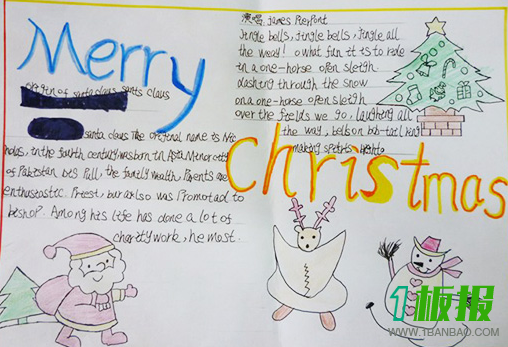 Merry
origin of santa claus santa claus
santa claus the original name is Nic
holas, in the fourth century was born in Asia Minor city
of Pakistan. his full, the family wealth, Parents are
enthusiastic. Priest, bur aslso was Promotad to
bishop. Among his life has done a lot of
charity work, he most.
演唱 James PierPont
Jingle bells, Jingle bells, Jingle all
the wead! o what fun it is to ride
in a one-horse open sleigh
dashing through the snow
on a one-horse open sleigh
over the feelds we go, laughing all
the way, bells on bob-tail king
making spirts
christmas
1板报
WWW.1BANBAO.COM